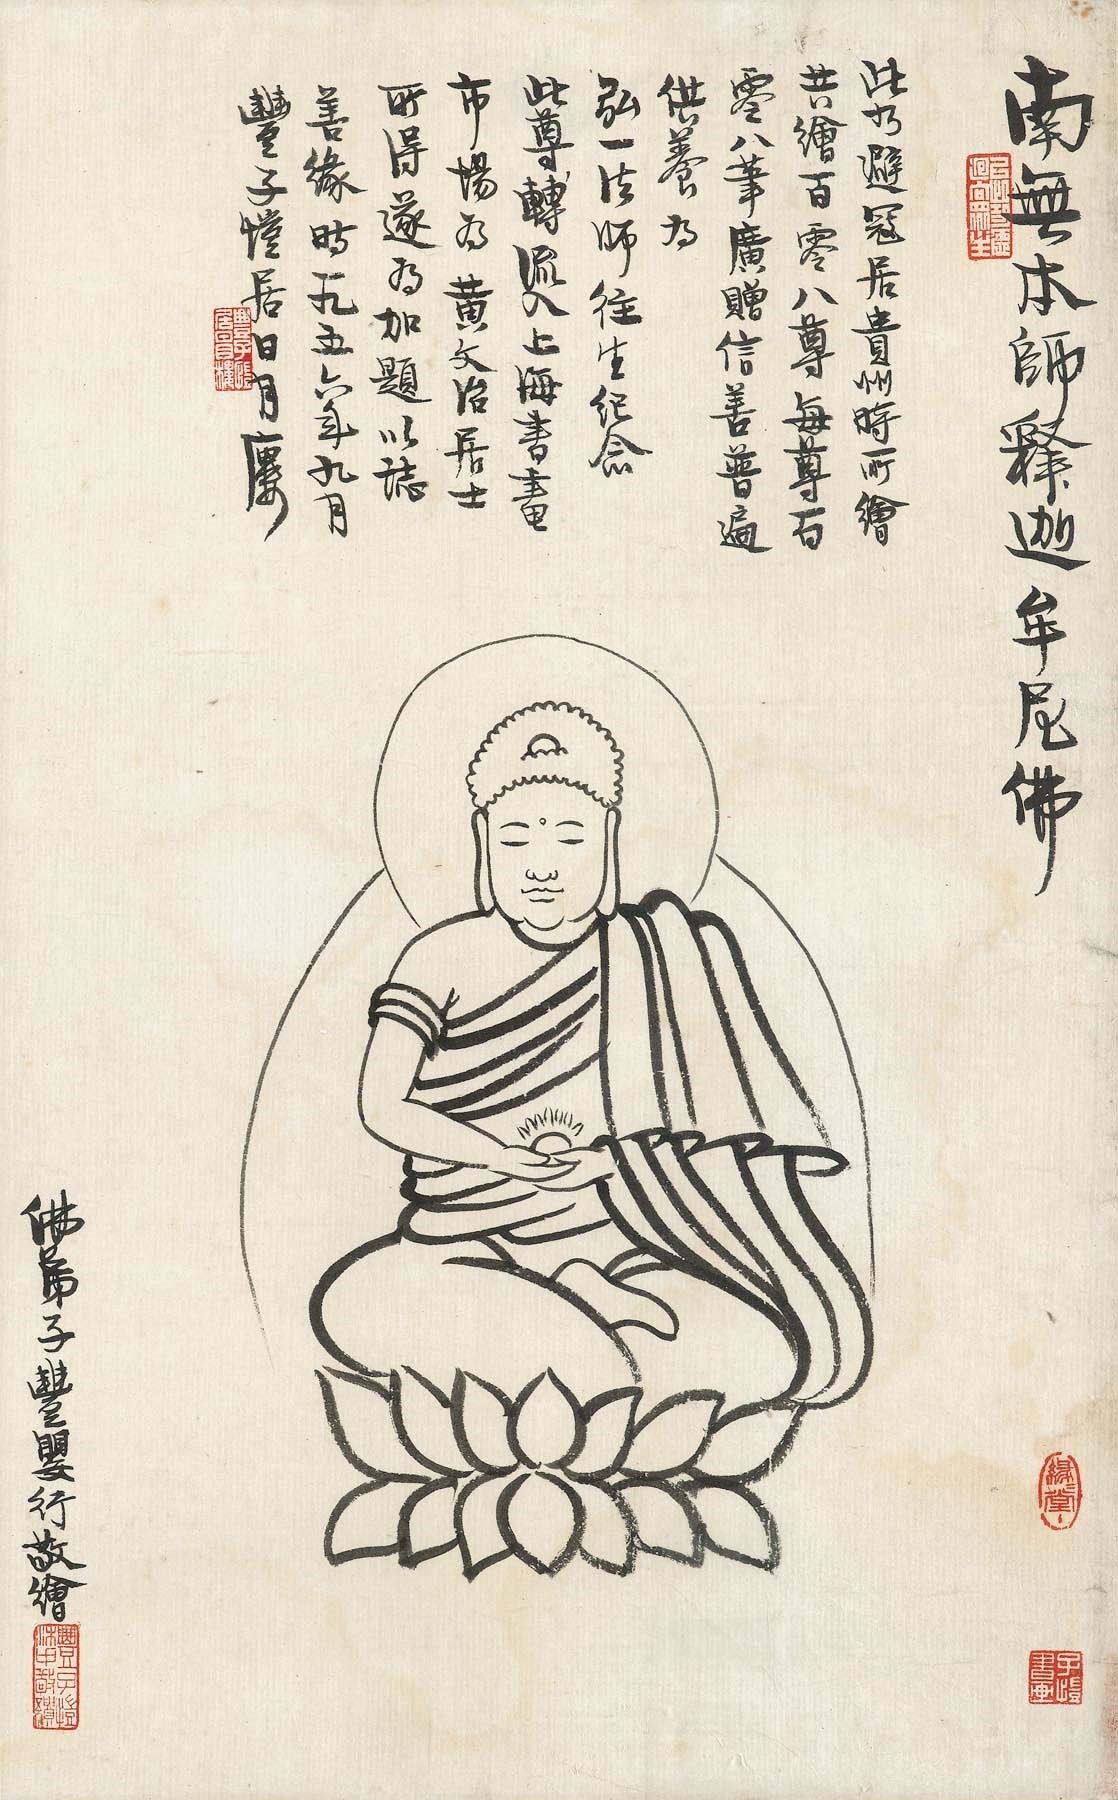 南無本師釋迦牟尼佛
此乃避寇居貴州時所繪
共繪百零八尊每尊百
零八筆廣贈信善普遍
供養為
弘一法師往生紀念
此尊轉流入上海書畫
市場為黄文治居士
所得遂為加題以誌
善緣時一九五六年九月
豐子愷居日月廔
佛弟子豐嬰行敬繪
緣堂
子愷書畫